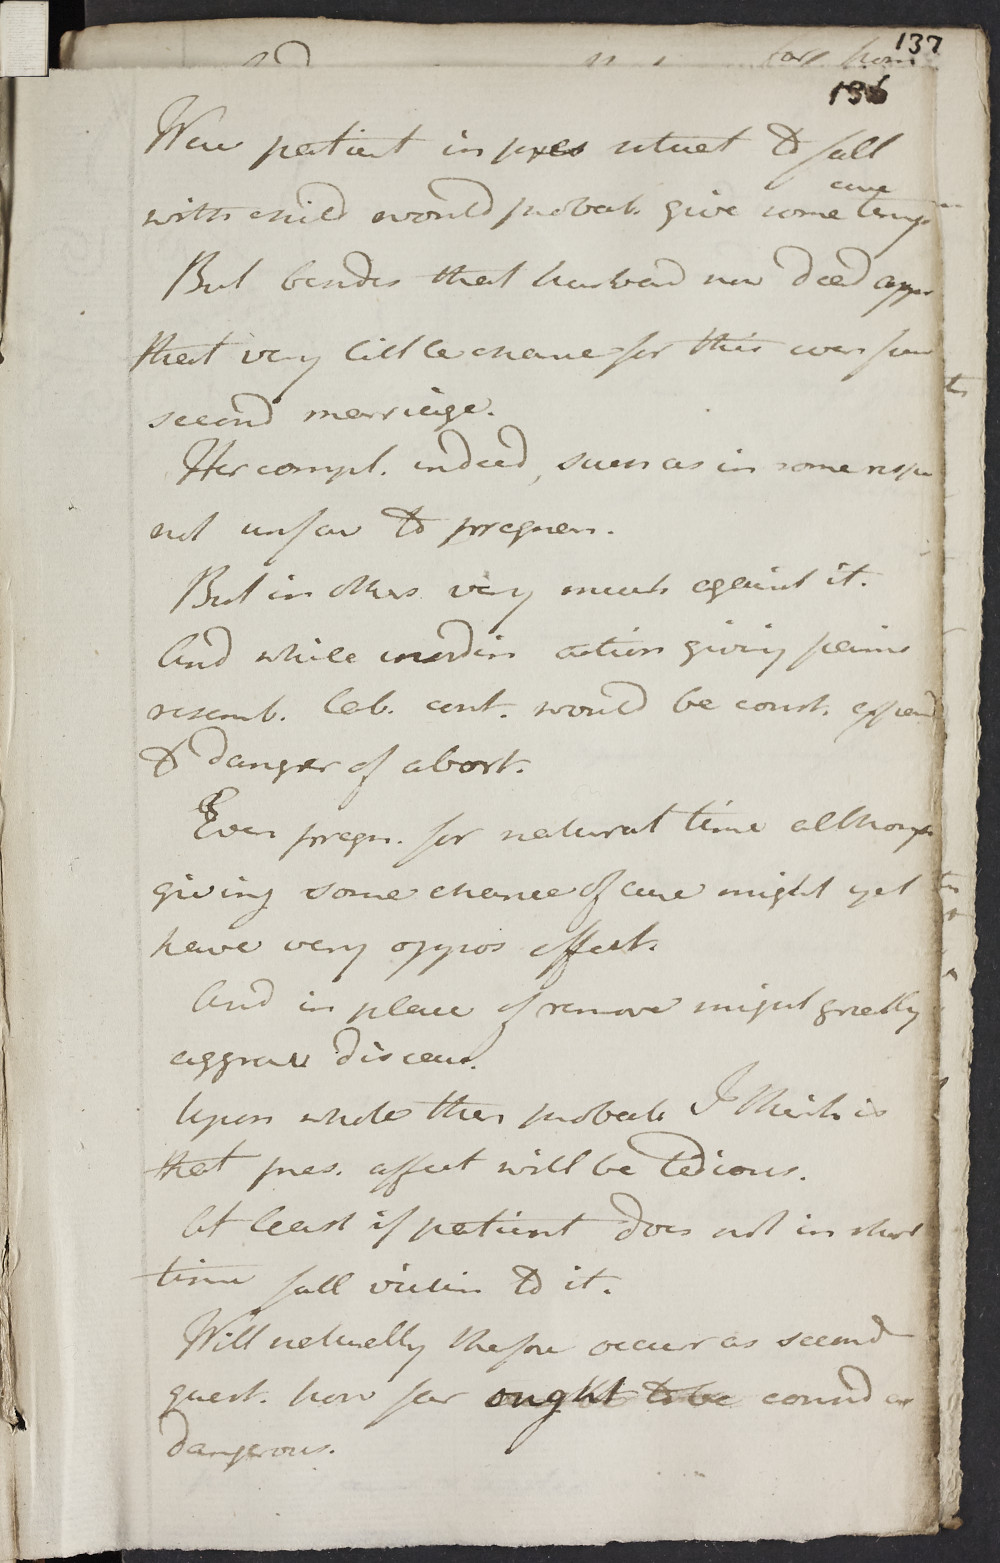 137
136
Were patient in pres situat to fall
with child would probab. give some temp
cure
But besides that husband now dead appr
that very little chance for this even from
second marriage.
Her compl. indeed, such as in some respe
not unfav to pregnan.
But in others very much against it.
And while inordin action giving pains
resemb. lab. cont. would be const. expos
to danger of abort.
Even pregn. for natural time although
giving some chance of cure might yet
have very oppos effect.
And in place of remove might greatly
aggrav diseas.
Upon whole then probab I think is
that pres. affect will be tedious.
At least if patient does not in short
time fall victim to it.
Will naturally therfore occur as second
quest. how far ought to be consid as
dangerous.